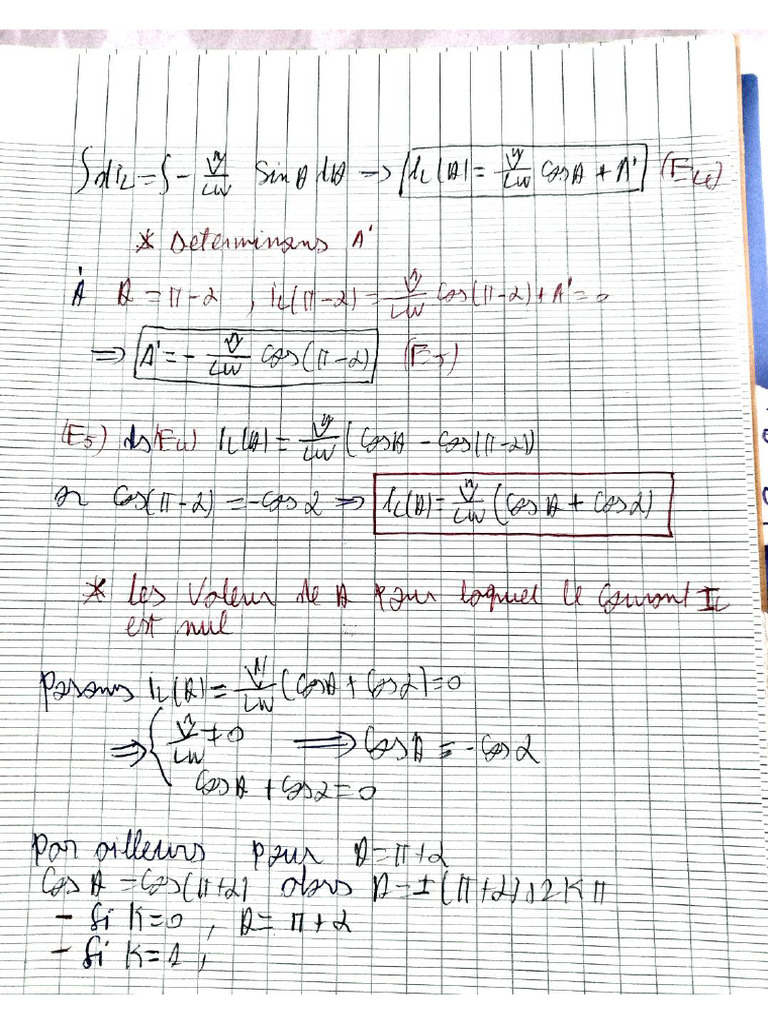 ∫diL = ∫ - V̂/LW Sin θ dθ → iL(θ) = V̂/LW Cos θ + A' (E4)
* Determinons A'
À θ = π-α , iL(π-α) = V̂/LW Cos(π-α) + A' = 0
⇒ A' = - V̂/LW Cos(π-α) (E5)
(E5) ds (E4) iL(θ) = V̂/LW (Cosθ - Cos(π-α))
or Cos(π-α) = -Cos α ⇒ iL(θ) = V̂/LW (Cos θ + Cos α)
* Les Valeur de θ pour laquel le Courant IL
est nul
Posons iL(θ) = V̂/LW (Cosθ + Cosα) = 0
⇒ { V̂/LW ≠ 0 ⇒ Cos θ = -Cos α
Cosθ + Cosα = 0
Par ailleurs pour θ = π+α
Cos θ = Cos(π+α) alors θ = ±(π+α) 2Kπ
- Si K=0 , θ = π+α
- Si K=1 ,